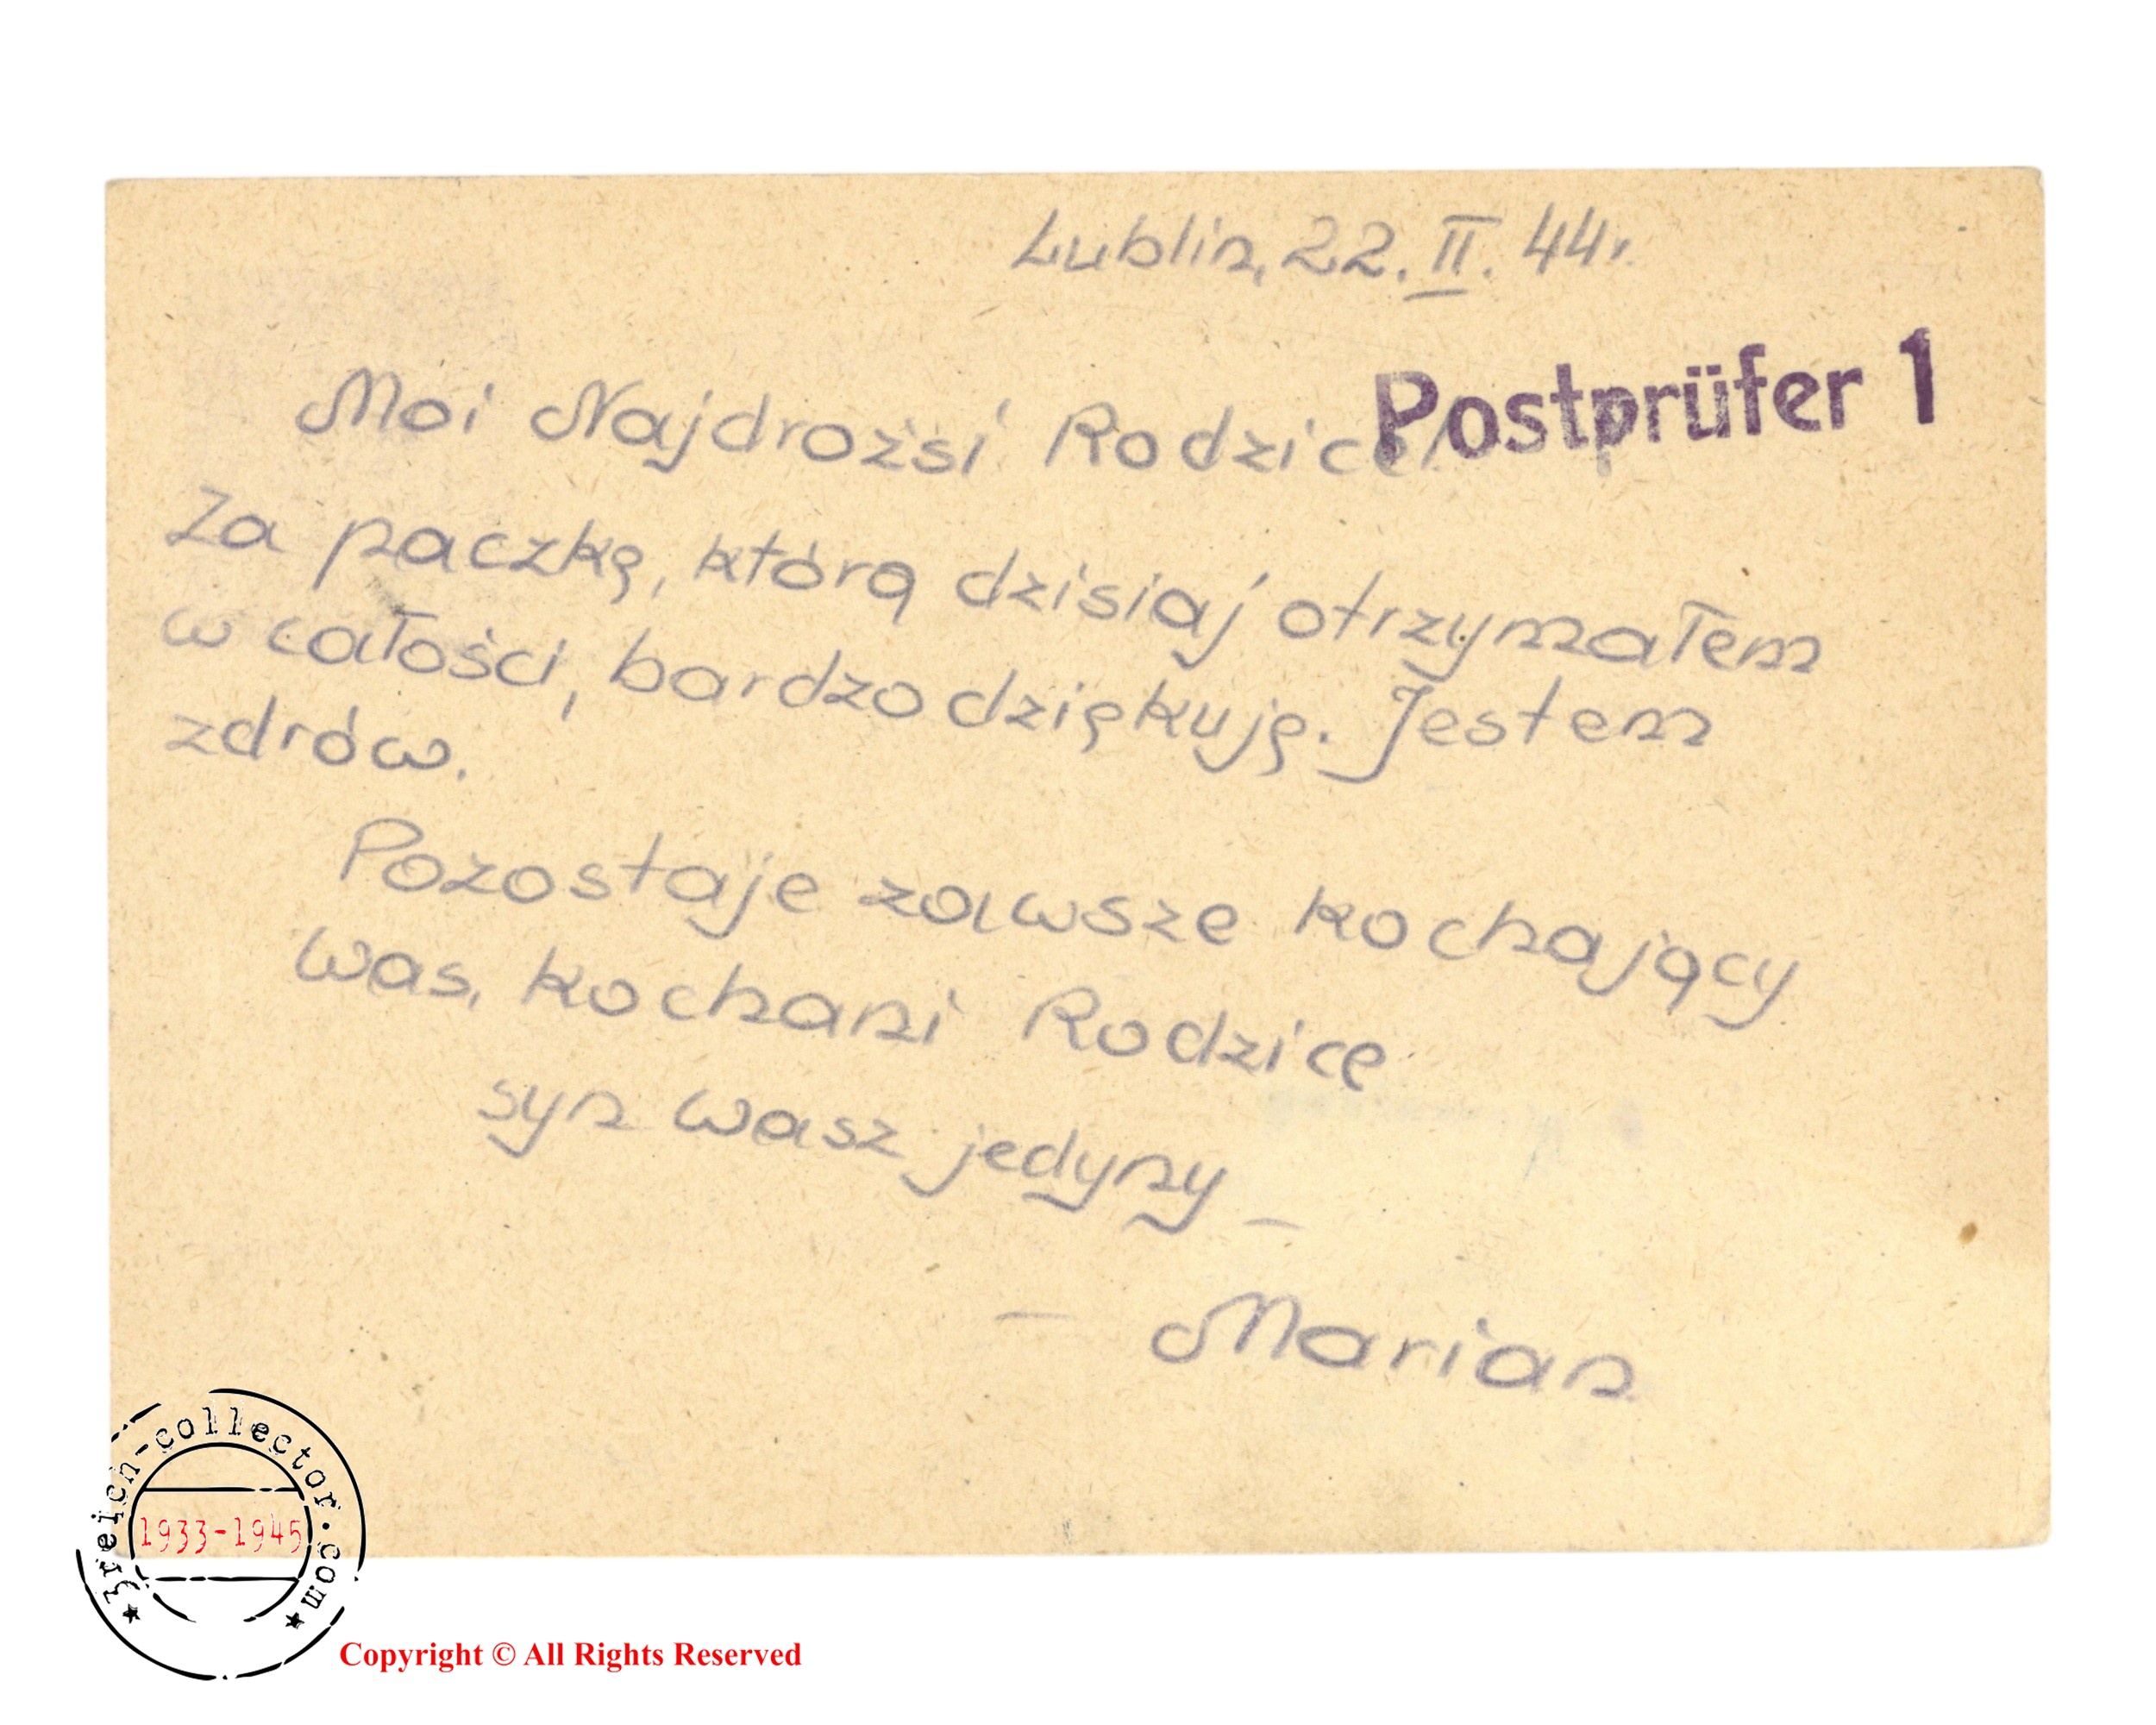 Lublin, 22. II. 44r.
Postprüfer 1
Moi Najdrożsi Rodzice!
Za paczkę, którą dzisiaj otrzymałem
w całości, bardzo dziękuję. Jestem
zdrów.
Pozostaje zawsze kochający
was, kochani Rodzice
syn wasz jedyny –
– Marian
3reich-collector.com
1933-1945
Copyright © All Rights Reserved